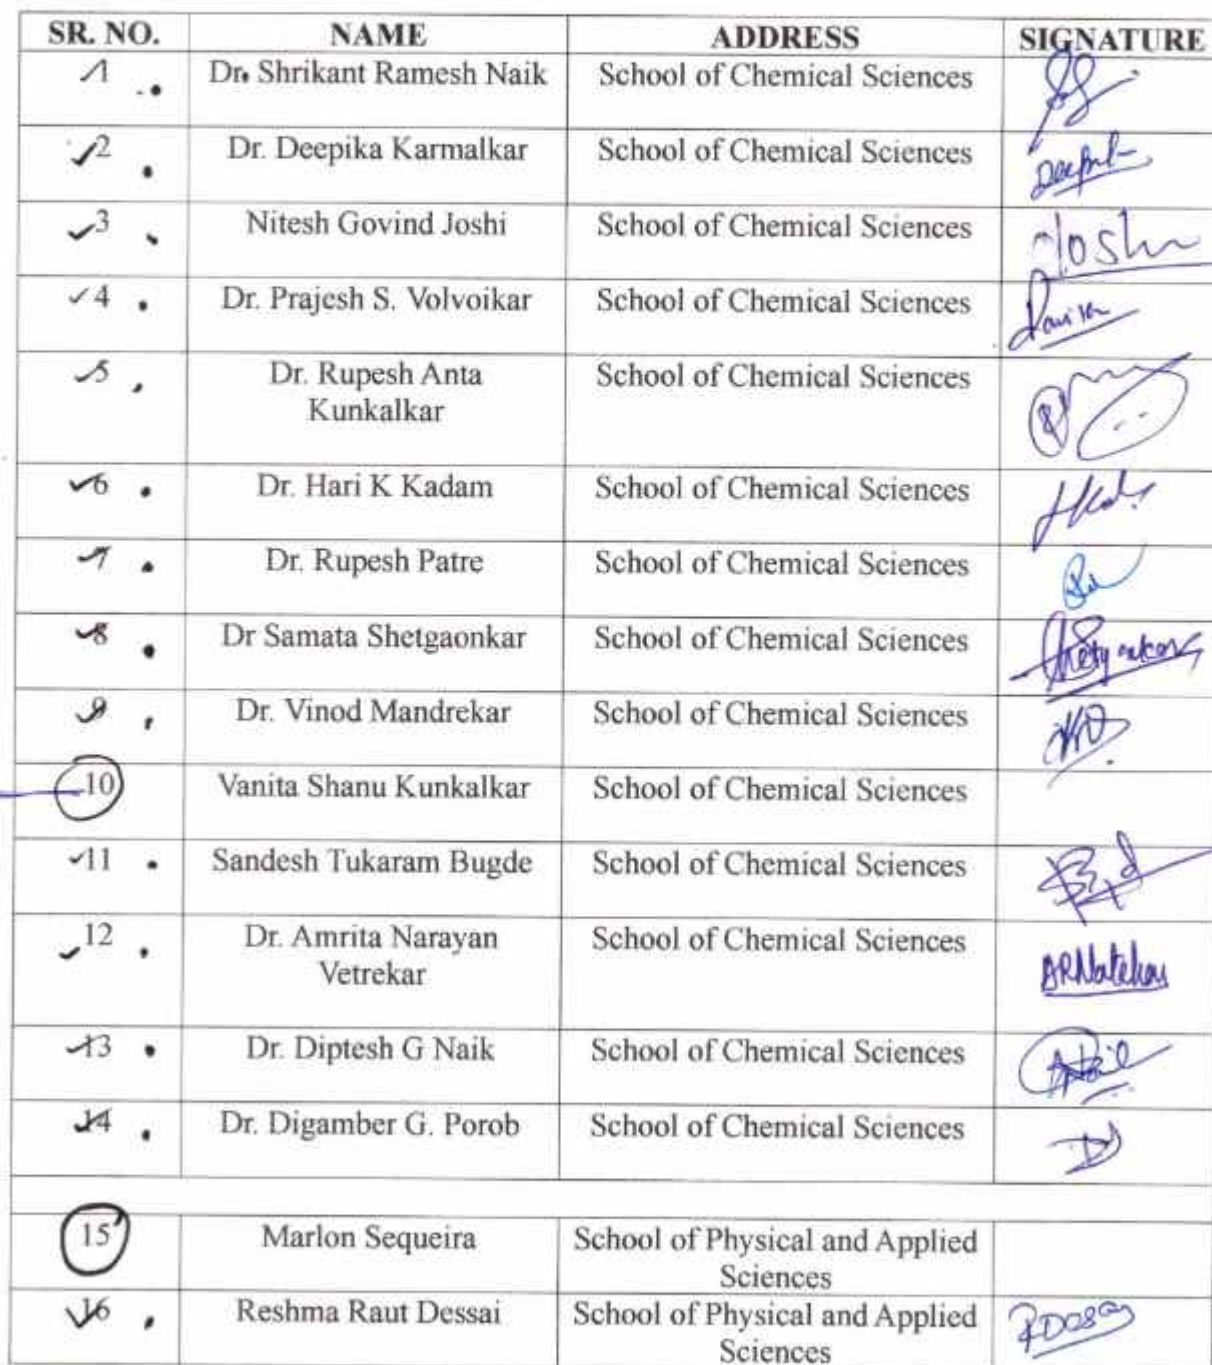 SR. NO. NAME ADDRESS SIGNATURE
1 Dr. Shrikant Ramesh Naik School of Chemical Sciences
2 Dr. Deepika Karmalkar School of Chemical Sciences
3 Nitesh Govind Joshi School of Chemical Sciences Joshi
4 Dr. Prajesh S. Volvoikar School of Chemical Sciences
5 Dr. Rupesh Anta School of Chemical Sciences
Kunkalkar
6 Dr. Hari K Kadam School of Chemical Sciences
7 Dr. Rupesh Patre School of Chemical Sciences
8 Dr Samata Shetgaonkar School of Chemical Sciences
9 Dr. Vinod Mandrekar School of Chemical Sciences
10 Vanita Shanu Kunkalkar School of Chemical Sciences
11 Sandesh Tukaram Bugde School of Chemical Sciences
12 Dr. Amrita Narayan School of Chemical Sciences
Vetrekar
13 Dr. Diptesh G Naik School of Chemical Sciences
14 Dr. Digamber G. Porob School of Chemical Sciences
15 Marlon Sequeira School of Physical and Applied
Sciences
16 Reshma Raut Dessai School of Physical and Applied
Sciences